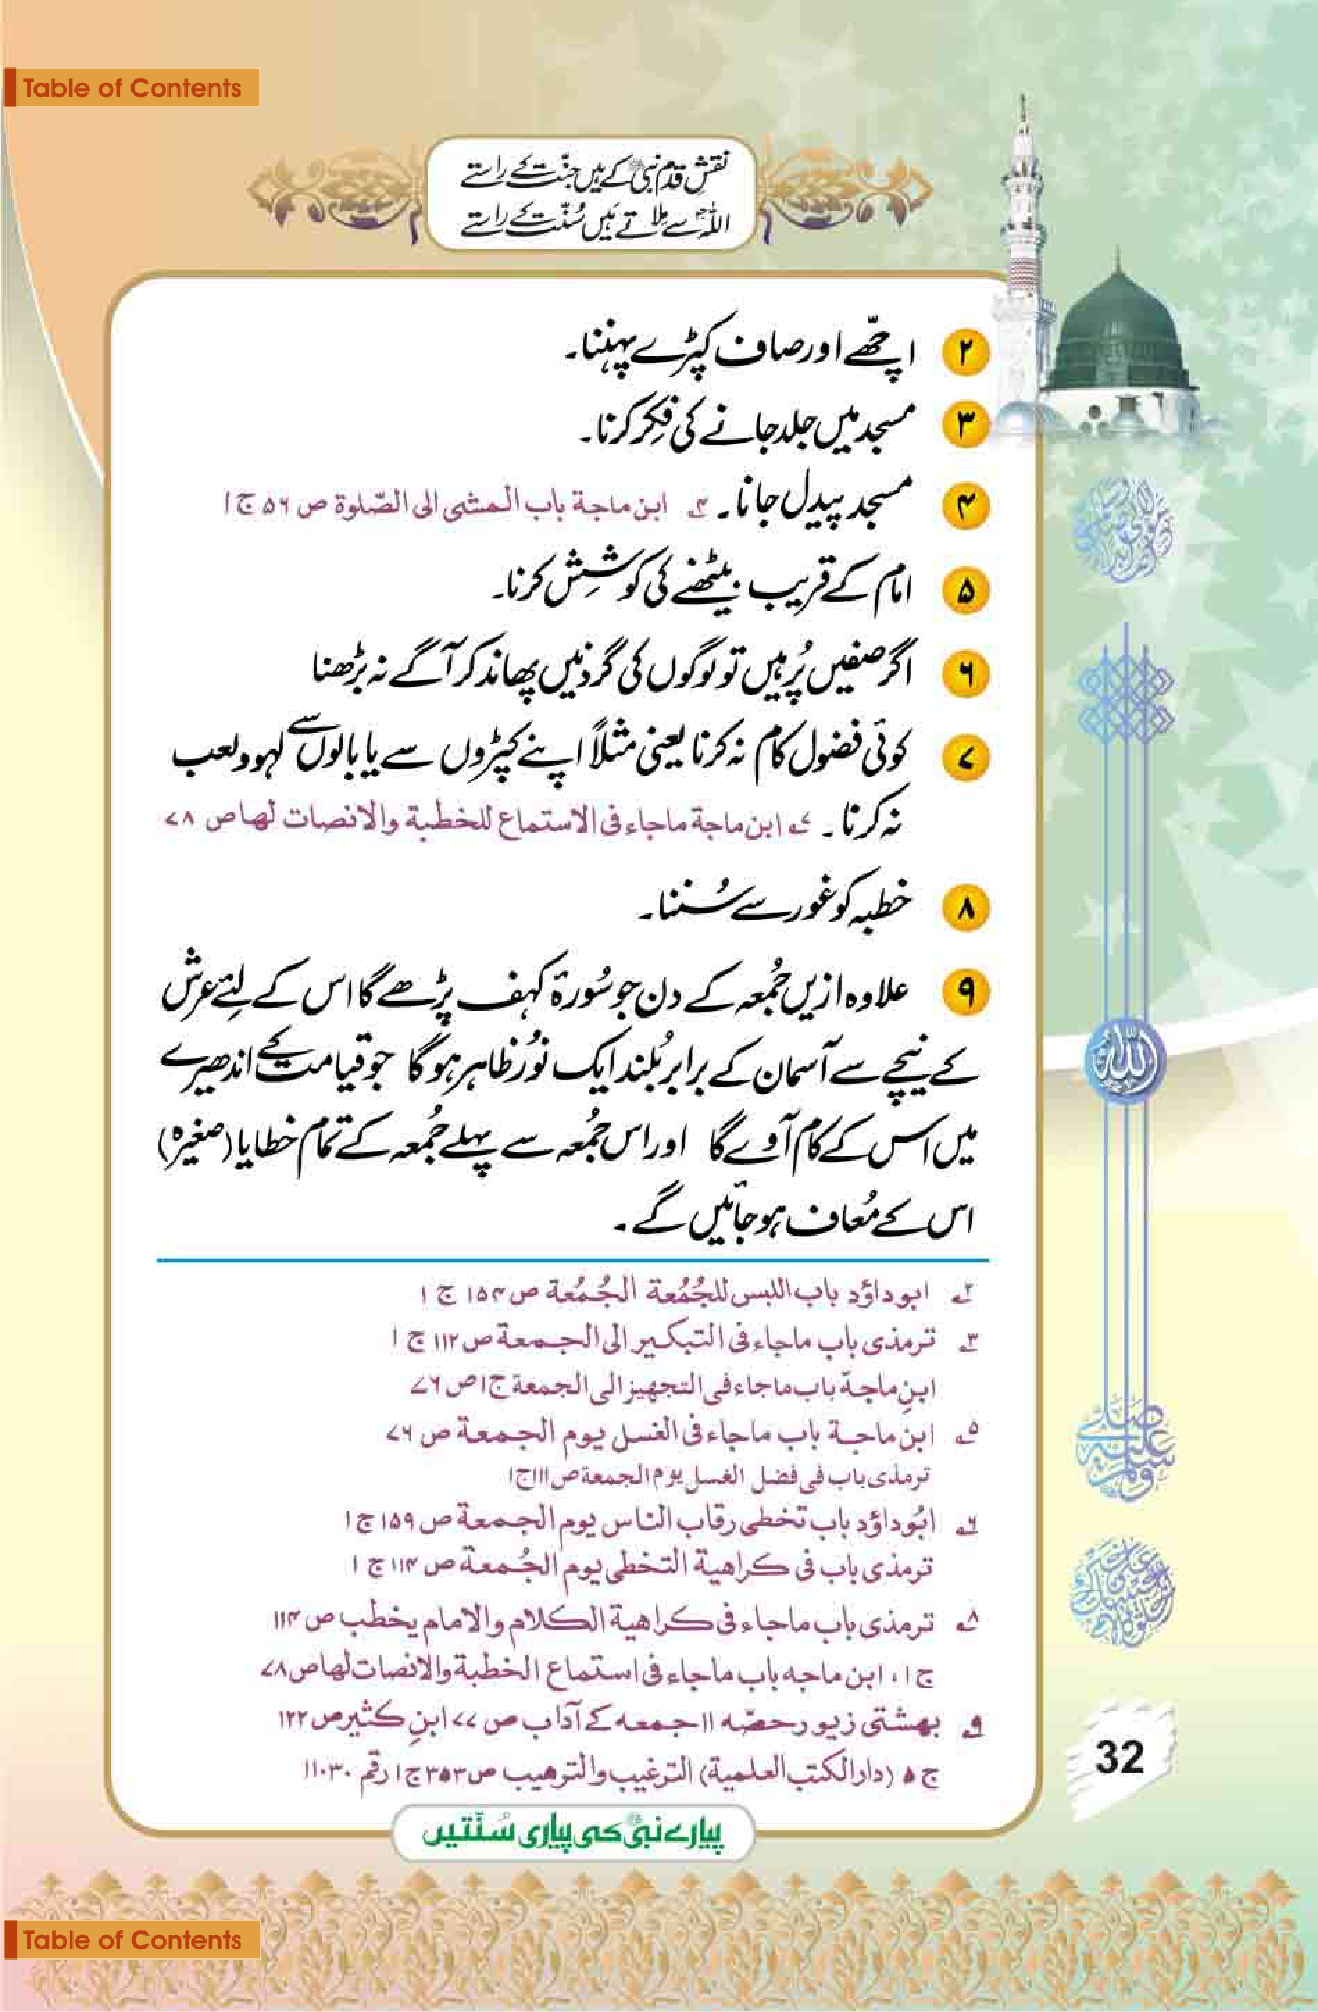 Table of Contents
نقشِ قدم نبیؐ کے ہیں جنّت کے راستے
اللہؐ سے ملاتے ہیں سُنّت کے راستے
۲ اچھّے اور صاف کپڑے پہننا۔
۳ مسجد میں جلد جانے کی فِکر کرنا۔
۴ مسجد پیدل جانا۔ ۴؎ ابن ماجة باب المشی الی الصّلوة ص ۵۶ ج ۱
۵ امام کے قریب بیٹھنے کی کوشِش کرنا۔
۶ اگر صفیں پُر ہیں تو لوگوں کی گردنیں پھاند کر آگے نہ بڑھنا
۷ کوئی فضول کام نہ کرنا یعنی مثلاً اپنے کپڑوں سے یا بالوں سے لہو و لعب
نہ کرنا۔ ۷؎ ابن ماجة ماجاء فی الاستماع للخطبة والانصات لها ص ۷۸
۸ خطبہ کو غور سے سُننا۔
۹ علاوہ ازیں جُمعہ کے دن جو سُورۃ کہف پڑھے گا اس کے لئے عرش
کے نیچے سے آسمان کے برابر بُلند ایک نُور ظاہر ہوگا جو قیامت کے اندھیرے
میں اس کے کام آوے گا اور اس جُمعہ سے پہلے جُمعہ کے تمام خطایا (صغیرہ)
اس کے مُعاف ہو جائیں گے۔
۲؎ ابو داؤد باب اللبس للجُمُعة الجُمُعة ص ۱۵۴ ج ۱
۳؎ ترمذی باب ماجاء فی التبکیر الی الجمعة ص ۱۱۲ ج ۱
ابنِ ماجة باب ماجاء فی التجهیز الی الجمعة ج ۱ ص ۷۶
۵؎ ابن ماجة باب ماجاء فی الغسل یوم الجمعة ص ۷۶
ترمذی باب فی فضل الغسل یوم الجمعة ص ۱۱۱ ج ۱
۶؎ ابُوداؤد باب تخطی رقاب الناس یوم الجمعة ص ۱۵۹ ج ۱
ترمذی باب فی کراهیة التخطی یوم الجُمعة ص ۱۱۴ ج ۱
۸؎ ترمذی باب ماجاء فی کراهیة الکلام والامام یخطب ص ۱۱۴
ج ۱، ابن ماجه باب ماجاء فی استماع الخطبة والانصات لها ص ۷۸
۹؎ بهشتی زیور حصّه ۱۱ جمعه کے آداب ص ۷۷ ابنِ کثیر ص ۱۲۲
ج ۵ (دارالکتب العلمیة) الترغیب والترهیب ص ۳۵۳ ج ۱ رقم ۱۱۰۳۰
الله
صلی الله علیه وسلم
32
پیارے نبیؐ کی پیاری سُنّتیں
Table of Contents